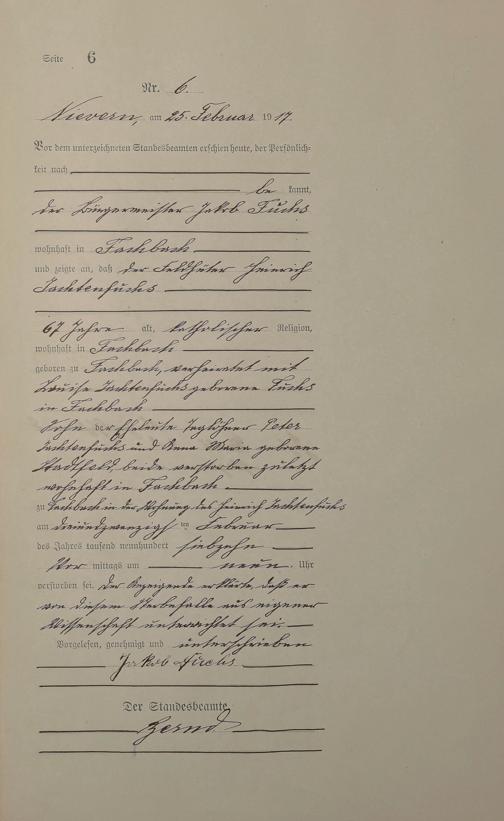 Seite 6
Nr. 6.
Nievern, am 25. Februar 1917.
Vor dem unterzeichneten Standesbeamten erschien heute, der Persönlich-
keit nach
be kannt,
der Bürgermeister Jakob Fuchs
wohnhaft in Fachbach
und zeigte an, daß der Feldhüter Heinrich
Jachtenfuchs
67 Jahre alt, katholischer Religion,
wohnhaft in Fachbach
geboren zu Fachbach, verheiratet mit
Louise Jachtenfuchs geborene Fuchs
in Fachbach
Sohn der Eheleute Taglöhner Peter
Jachtenfuchs und Anna Maria geborene
Stadtfeld, beide verstorben zuletzt
wohnhaft in Fachbach
zu Fachbach in der Wohnung des Heinrich Jachtenfuchs
am dreiundzwanzigsten Februar
des Jahres tausend neunhundert siebzehn
Vor mittags um neun Uhr
verstorben sei. Der Anzeigende erklärte, daß er
von diesem Sterbefalle aus eigener
Wissenschaft unterrichtet sei.
Vorgelesen, genehmigt und unterschrieben
Jakob Fuchs
Der Standesbeamte.